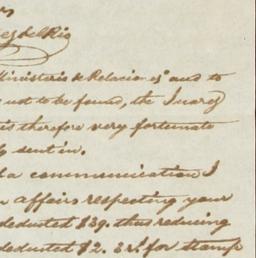 es del Rio
Ministerio de Relacion es and to
not to be found, the Juarez
is therefore very fortunate
sent in.
a communication I
affairs respecting your
deducted $39. thus reducing
deducted $2. 3rl. for stamp